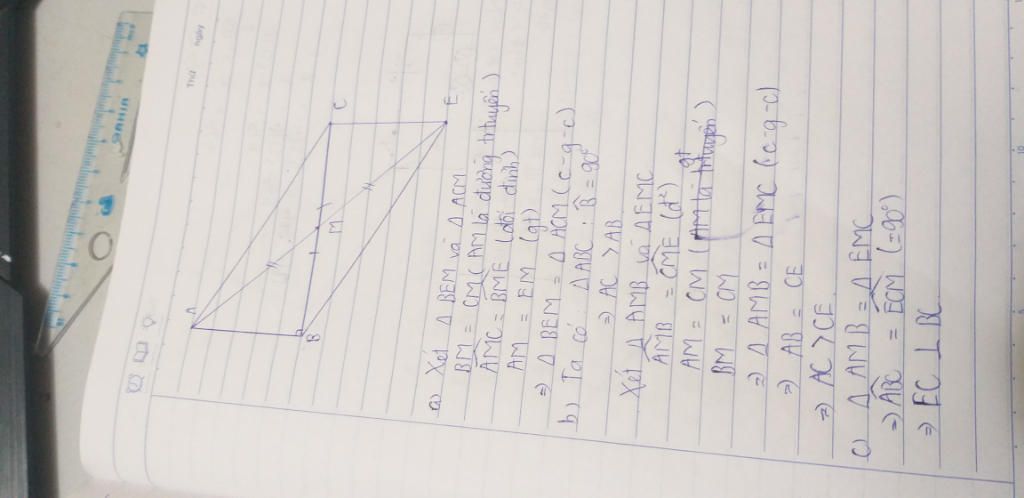 Thứ ngày
A
B
C
M
E
a) Xét Δ BEM và Δ ACM
BM = CM (AM là đường tr tuyến)
AMC = BME (đối đỉnh)
AM = EM (gt)
⇒ Δ BEM = Δ ACM (c-g-c)
b) Ta có: Δ ABC: B̂ = 90°
⇒ AC > AB
Xét Δ AMB và Δ EMC
AMB = CME (đ²)
AM = CM (AM là tr tuyến) gt
BM = CM
⇒ Δ AMB = Δ EMC (c-g-c)
⇒ AB = CE
⇒ AC > CE
c) Δ AMB = Δ EMC
⇒ ABC = ECM (=90°)
⇒ EC ⊥ BC